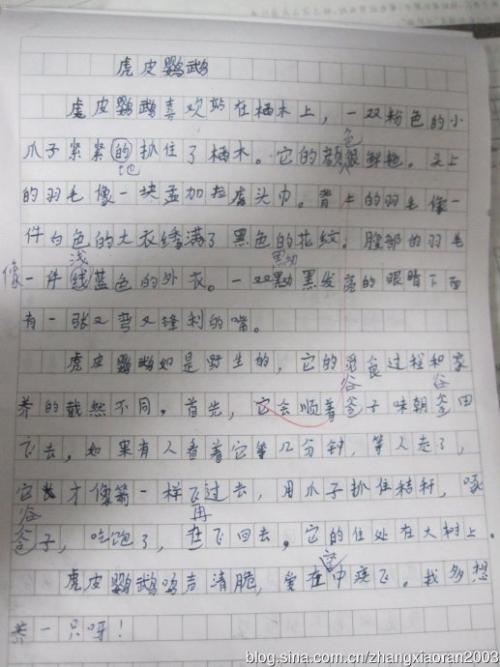 虎皮鹦鹉
虎皮鹦鹉喜欢站在栖木上，一双粉色的小
爪子紧紧的抓住了栖木。它的颜色鲜艳。头上
地
的羽毛像一块孟加拉虎头巾。背上的羽毛像一
件白色的大衣绣满了黑色的花纹。腹部的羽毛
像一件浅蓝色的外衣。一双黝黑发亮的眼睛下面
有一张又弯又锋利的嘴。
虎皮鹦鹉如是野生的，它的觅食过程和家
养的截然不同。首先，它会顺着谷子味朝谷田
飞去，如果有人看着它等几分钟，等人走了，
它才像箭一样飞过去，用爪子抓住秸秆，啄
谷子，吃饱了，再飞回去。它的住处在大树上。
虎皮鹦鹉鸣声清脆，爱在空中疾飞。我多想
养一只呀！
blog.sina.com.cn/zhangxiaoran2003